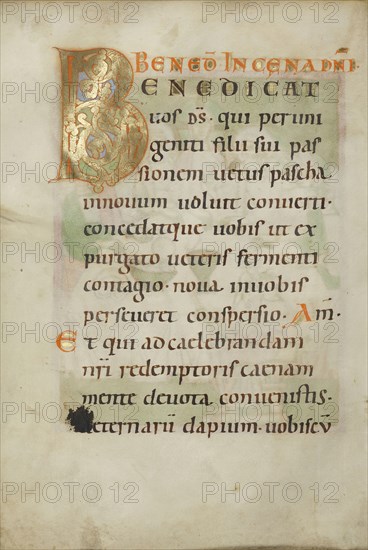 BENED̄ IN CENA DN̄I·
BENEDICAT
uos ds̄· qui per uni
geniti filii sui pas
sionem uetus pascha
innouum uoluit conuerti·
concedatque uobis ut ex
purgato ueteris fermenti
contagio· noua inuobis
perseueret conspersio· Am̄·
Et qui adcaelebrandam
nr̄i redemptoris caenam
mente deuota conuenistis·
aeternarū dapium· uobiscū
PHOTO 12